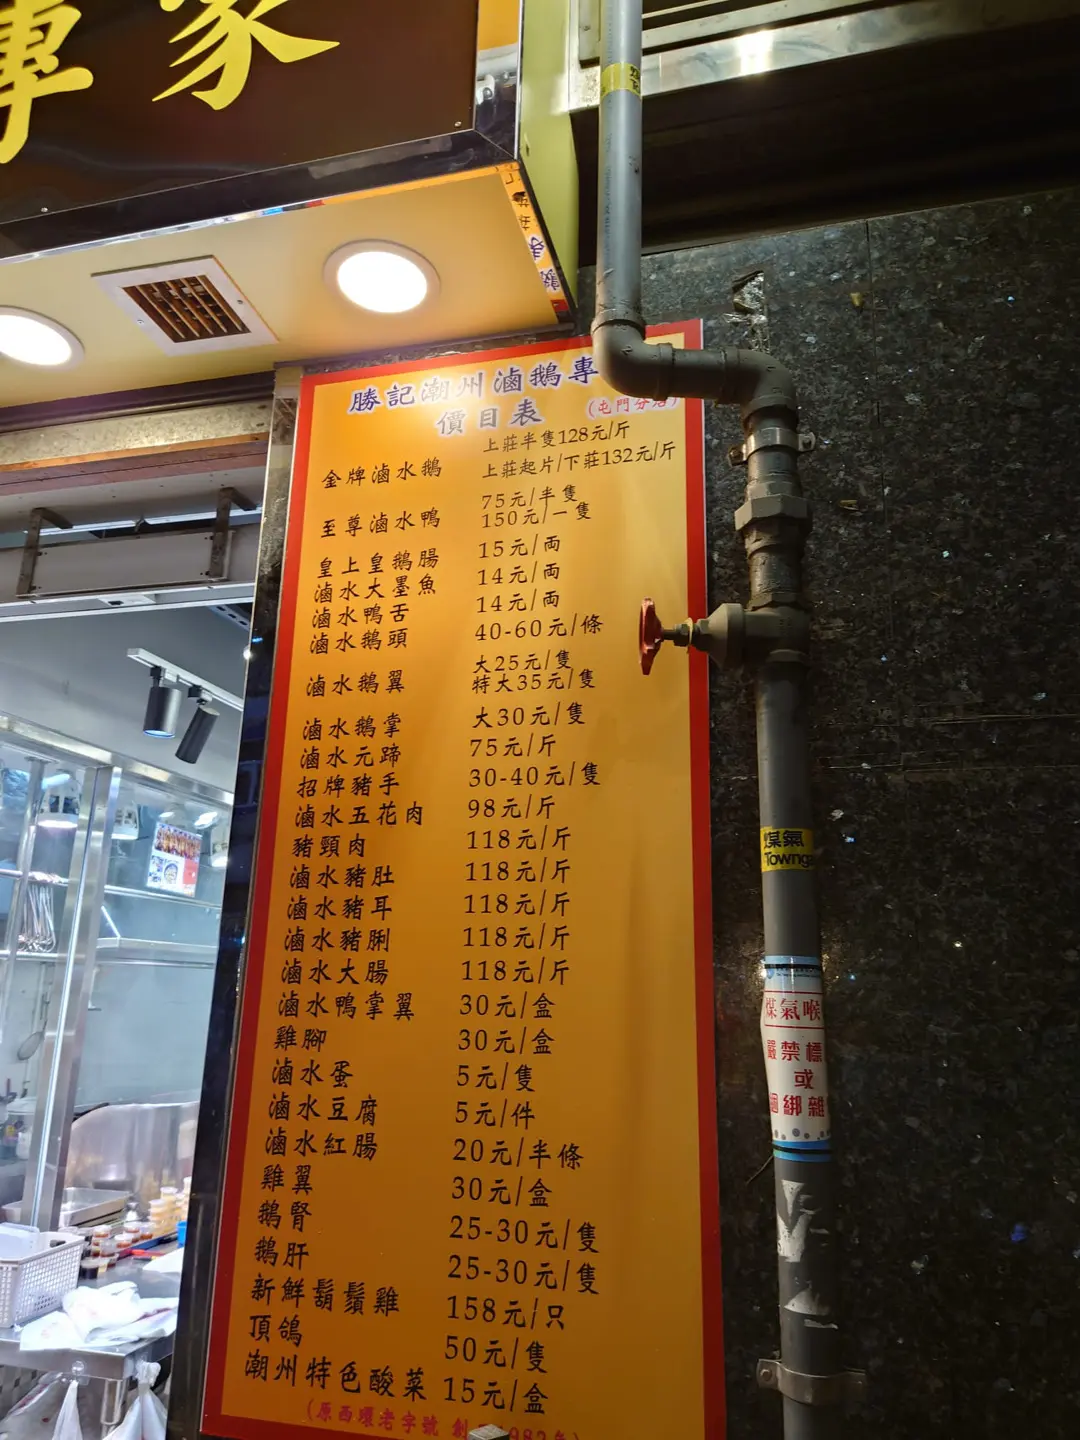 專家
煤
勝記潮州滷鵝專
價目表 (屯門分店)
金牌滷水鵝 上莊半隻128元/斤
上莊起片/下莊132元/斤
至尊滷水鴨 75元/半隻
150元/一隻
皇上皇鵝腸 15元/両
滷水大墨魚 14元/両
滷水鴨舌 14元/両
滷水鵝頭 40-60元/條
滷水鵝翼 大25元/隻
特大35元/隻
滷水鵝掌 大30元/隻
滷水元蹄 75元/斤
招牌豬手 30-40元/隻
滷水五花肉 98元/斤
豬頸肉 118元/斤
滷水豬肚 118元/斤
滷水豬耳 118元/斤
滷水豬脷 118元/斤
滷水大腸 118元/斤
滷水鴨掌翼 30元/盒
雞腳 30元/盒
滷水蛋 5元/隻
滷水豆腐 5元/件
滷水紅腸 20元/半條
雞翼 30元/盒
鵝腎 25-30元/隻
鵝肝 25-30元/隻
新鮮鬍鬚雞 158元/只
頂鴿 50元/隻
潮州特色酸菜 15元/盒
(原西環老字號 創 982年)
煤氣
Towng
煤氣喉
嚴禁標
或
綑綁雜